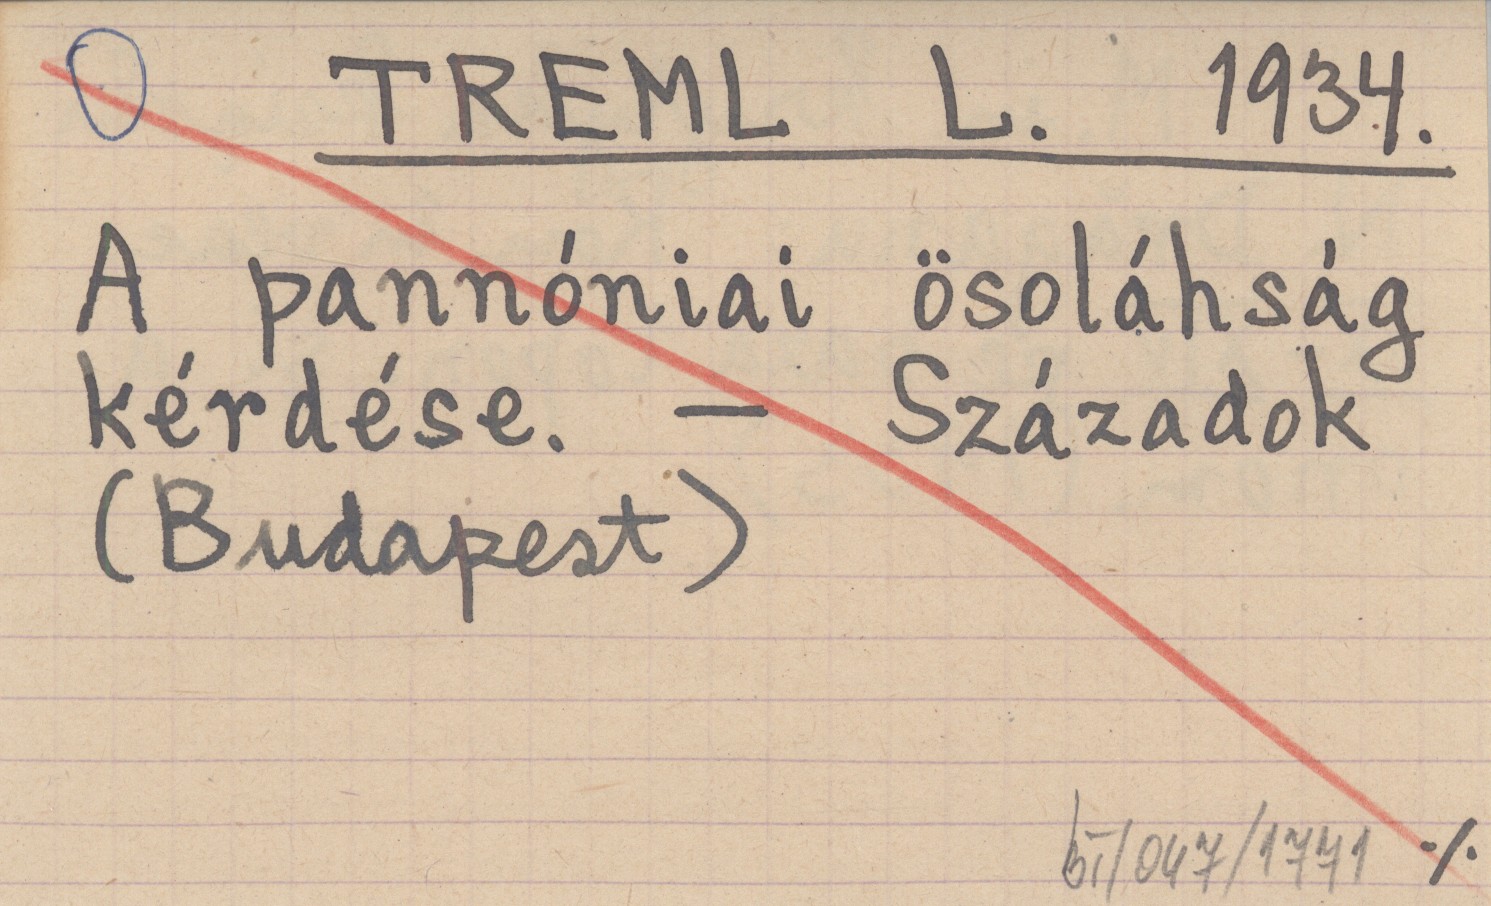 TREML L. 1934.
A pannóniai ösoláhság
kérdése. — Századok
(Budapest)
bi/047/1771 ·/.